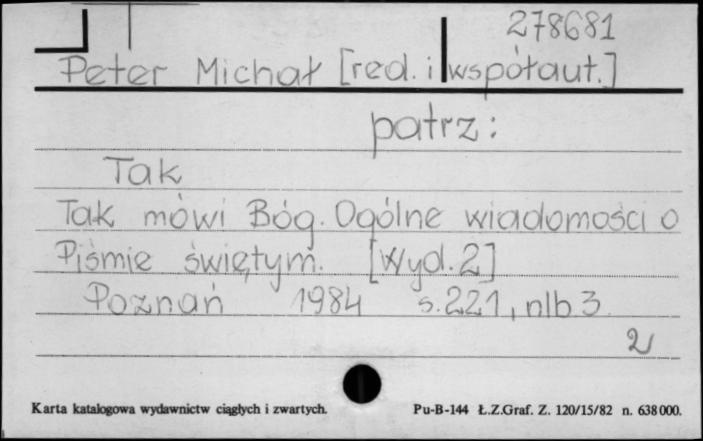 278681
Peter Michał [red. i współaut.]
patrz:
Tak
Tak mówi Bóg. Ogólne wiadomości o
Piśmie świętym. [Wyd. 2]
Poznań 1984 s. 221, nlb 3
2
Karta katalogowa wydawnictw ciągłych i zwartych. Pu-B-144 Ł.Z.Graf. Z. 120/15/82 n. 638000.